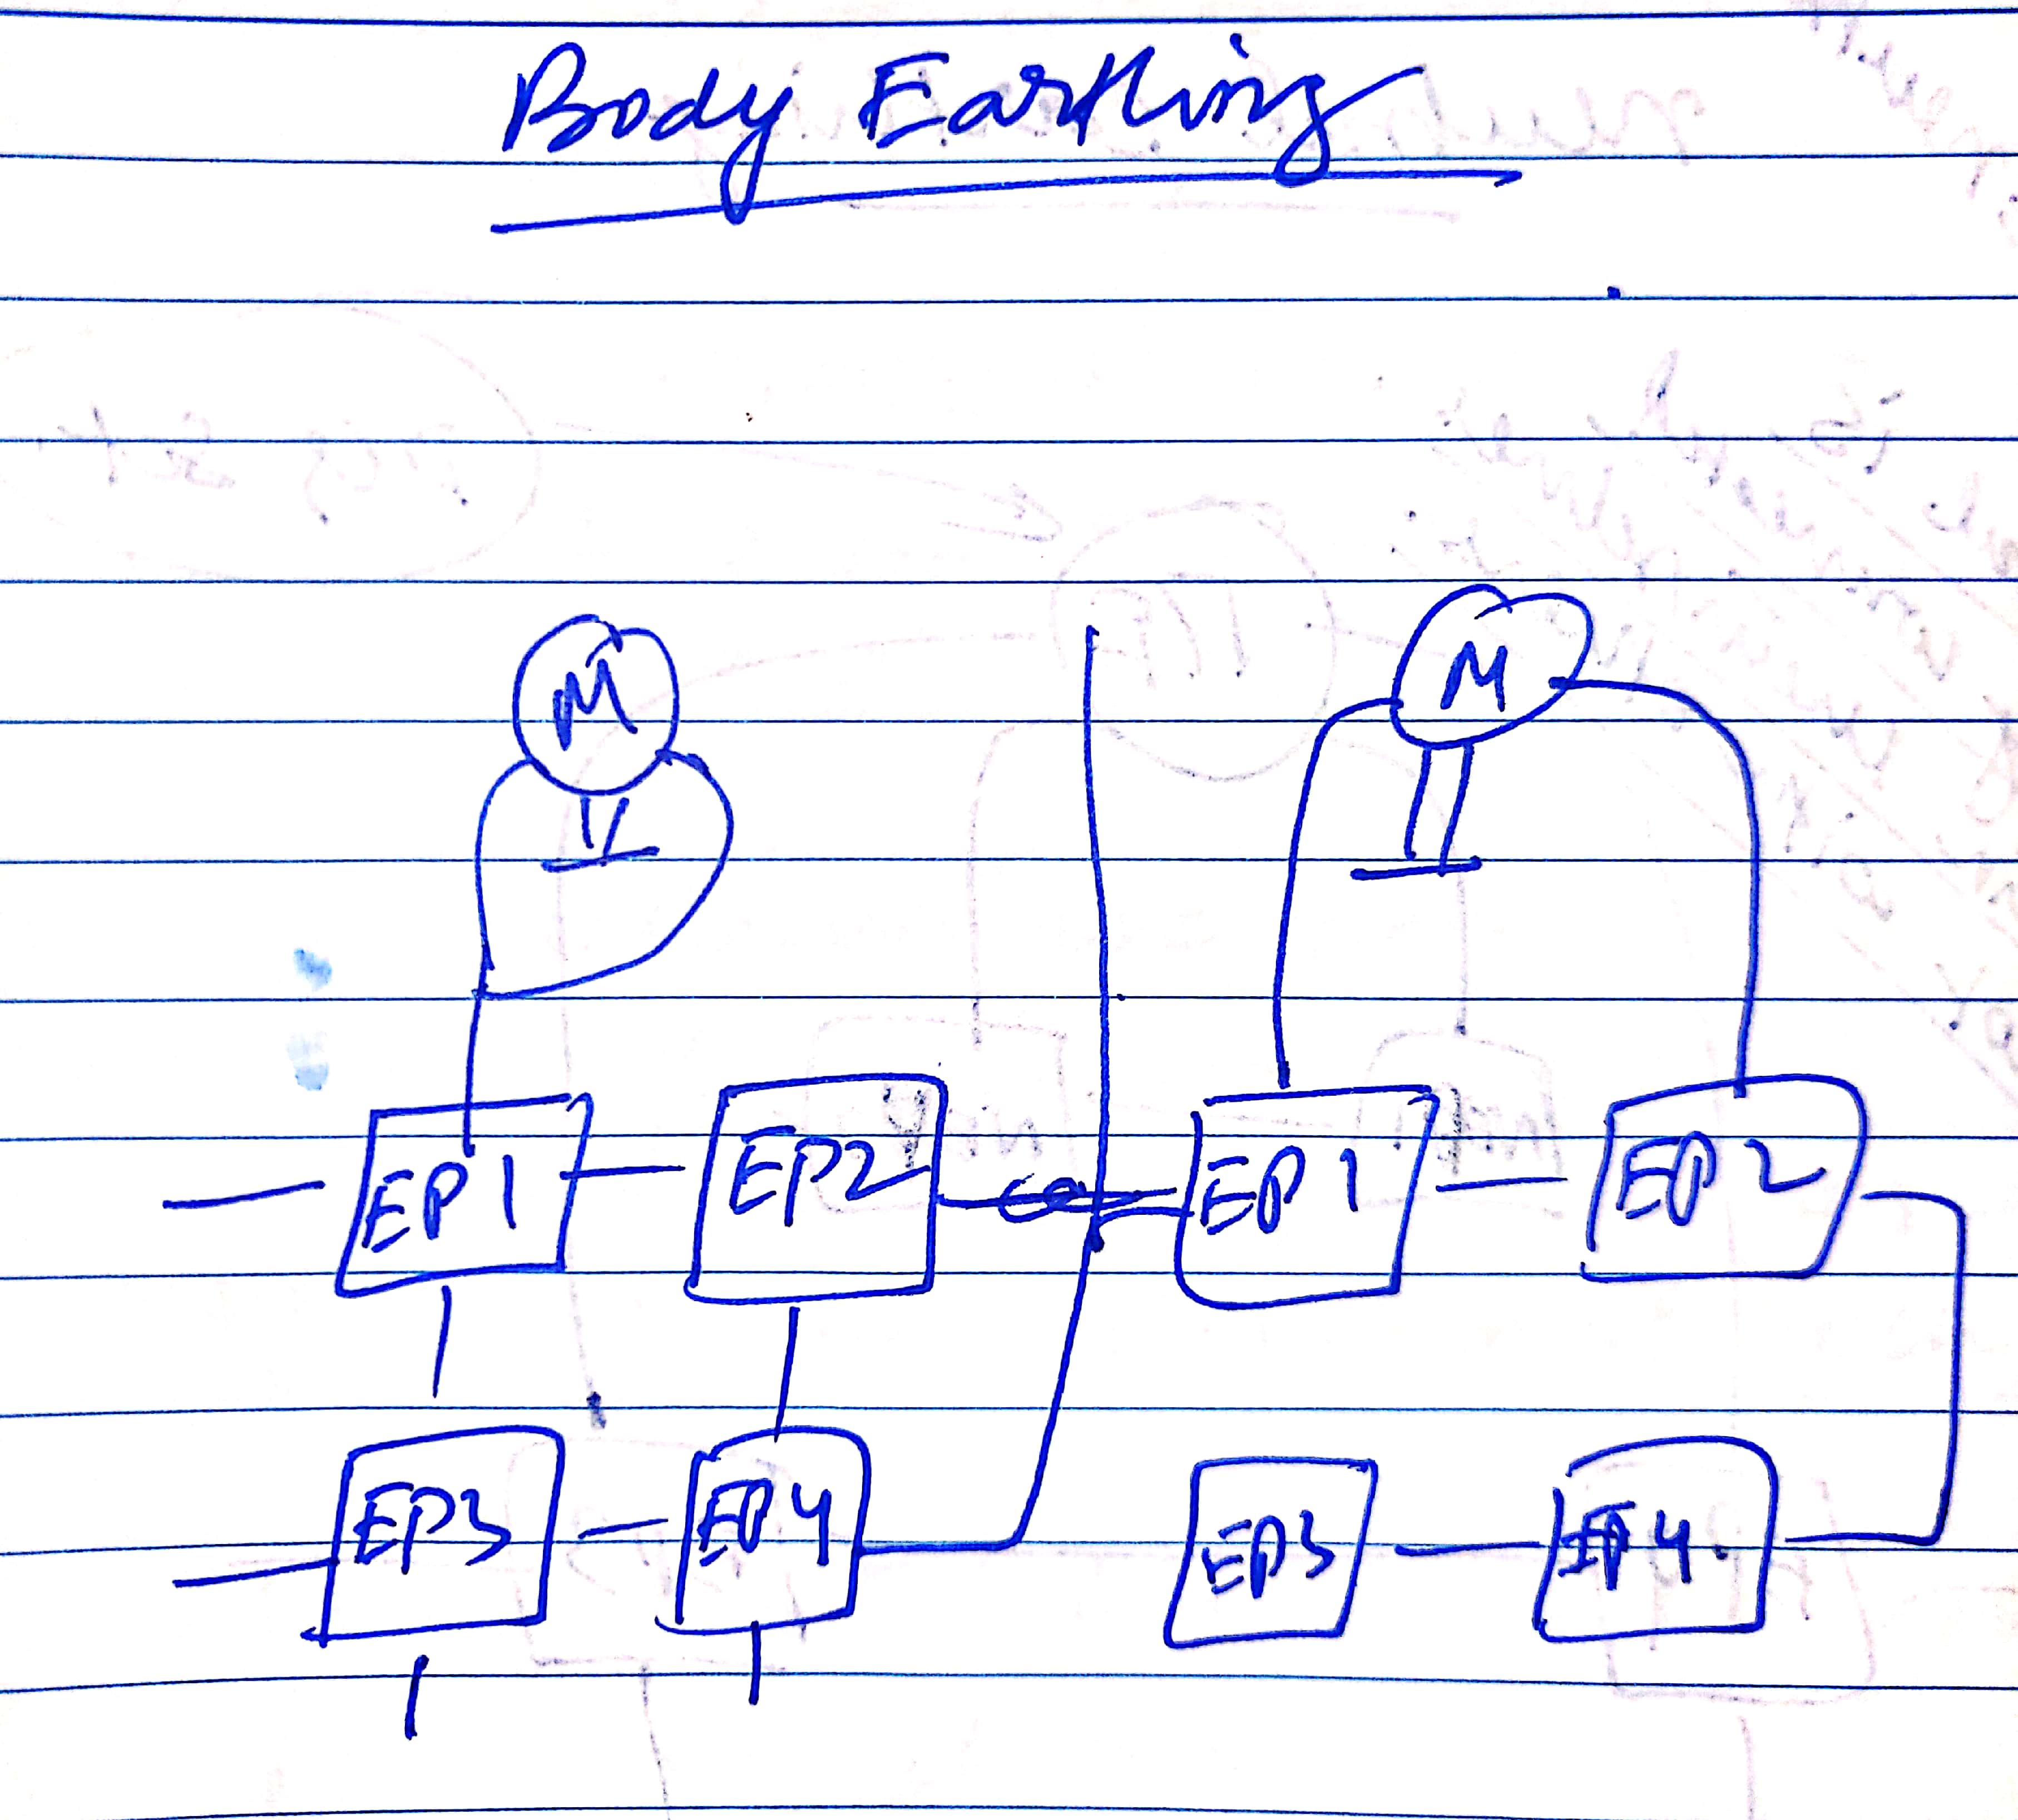 Body Earthing
M M
EP1 EP2 EP1 EP2
EP3 EP4 EP3 EP4